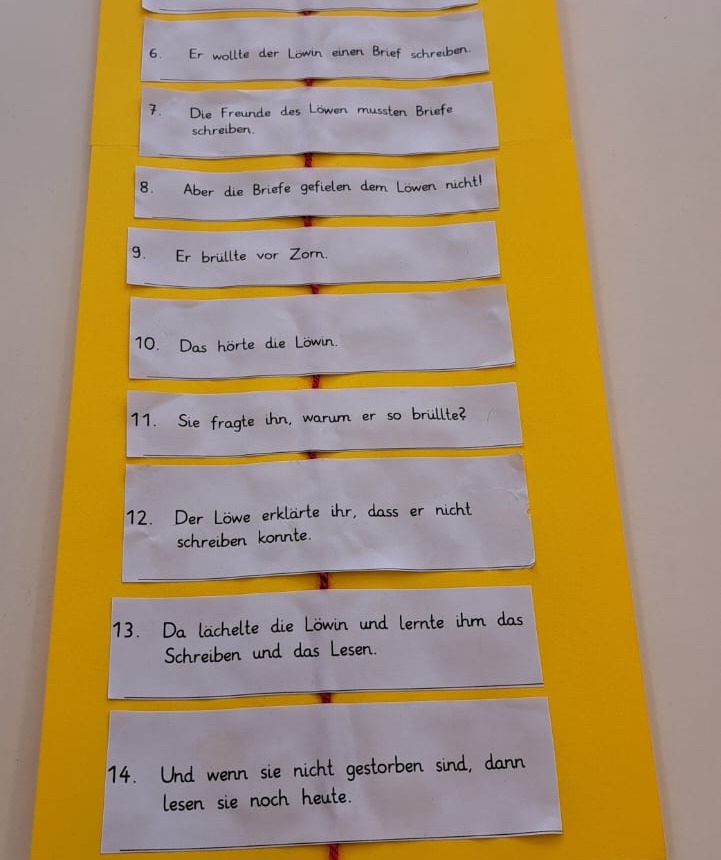 6. Er wollte der Löwin einen Brief schreiben.
7. Die Freunde des Löwen mussten Briefe
schreiben.
8. Aber die Briefe gefielen dem Löwen nicht!
9. Er brüllte vor Zorn.
10. Das hörte die Löwin.
11. Sie fragte ihn, warum er so brüllte?
12. Der Löwe erklärte ihr, dass er nicht
schreiben konnte.
13. Da lächelte die Löwin und lernte ihm das
Schreiben und das Lesen.
14. Und wenn sie nicht gestorben sind, dann
lesen sie noch heute.